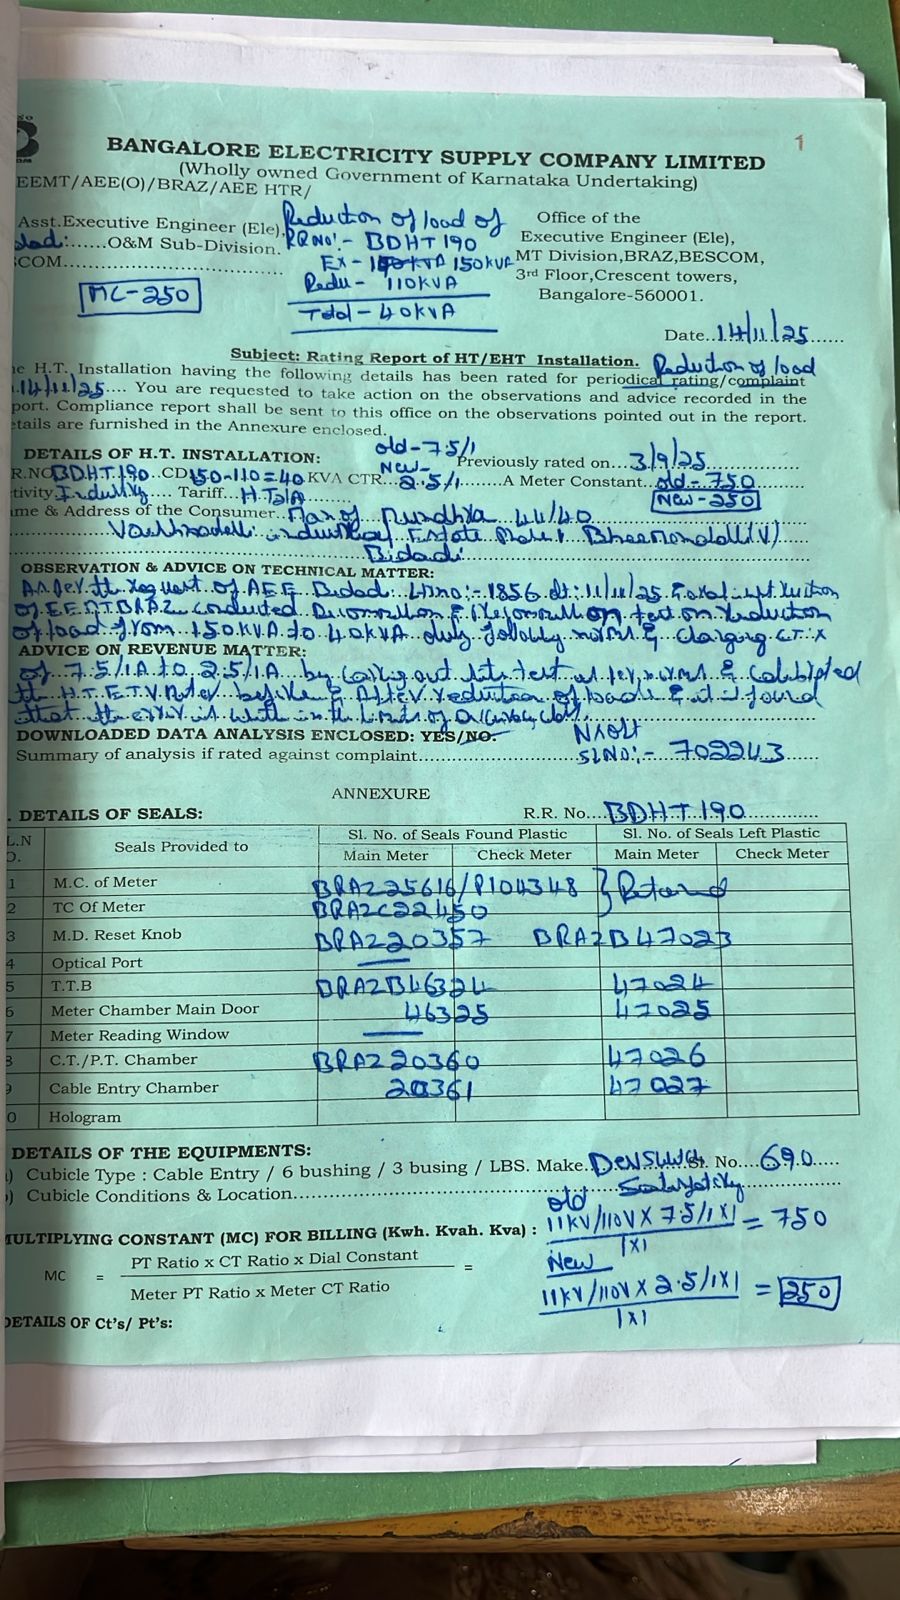 1
BANGALORE ELECTRICITY SUPPLY COMPANY LIMITED
(Wholly owned Government of Karnataka Undertaking)
EEMT/AEE(O)/BRAZ/AEE HTR/
Asst.Executive Engineer (Ele),
O&M Sub-Division.
COM
MC-250
Reduction of load of
RRNo:- BDHT 190
Ex- 150KVA
Redu- 110KVA
Total- 40KVA
Office of the
Executive Engineer (Ele),
MT Division,BRAZ,BESCOM,
3rd Floor,Crescent towers,
Bangalore-560001.
Date..14/11/25
Subject: Rating Report of HT/EHT Installation. Reduction of load
H.T. Installation having the following details has been rated for periodical rating/complaint
14/11/25.... You are requested to take action on the observations and advice recorded in the
port. Compliance report shall be sent to this office on the observations pointed out in the report.
tails are furnished in the Annexure enclosed.
DETAILS OF H.T. INSTALLATION: old-7.5/1
Previously rated on...3/9/25
R.NO BDHT.190..CD150-110=40 KVA CTR...New- 2.5/1........A Meter Constant..old-750
tivity.Industry.... Tariff...H.T2(A New-250
me & Address of the Consumer..
industrial Estate
Bidadi
OBSERVATION & ADVICE ON TECHNICAL MATTER:
As per the request of AEE Bidadi 1856 dt:11/11/25 & oral
conducted on reduction
of load from 150KVA to 40KVA duly & changing C.T.
ADVICE ON REVENUE MATTER:
of 7.5/1A to 2.5/1A by out test as per norms & Calibrated
the H.T.E.T.V Meter before & After reduction of load & it is found
that the error is with in the limits of
DOWNLOADED DATA ANALYSIS ENCLOSED: YES/NO.
Summary of analysis if rated against complaint
SLNO:- 702243
ANNEXURE
DETAILS OF SEALS:
R.R. No....BDHT 190
L.N O.
Seals Provided to
Sl. No. of Seals Found Plastic
Sl. No. of Seals Left Plastic
Main Meter Check Meter Main Meter Check Meter
1 M.C. of Meter BRAZ25616/P104348
2 TC Of Meter
3 M.D. Reset Knob BRAZ20357 BRAZB47023
4 Optical Port —
5 T.T.B BRAZB46324 47024
6 Meter Chamber Main Door 46325 47025
7 Meter Reading Window —
8 C.T./P.T. Chamber BRAZ20360 47026
9 Cable Entry Chamber 20361 47027
0 Hologram
DETAILS OF THE EQUIPMENTS:
) Cubicle Type : Cable Entry / 6 bushing / 3 busing / LBS. Make. Sl. No....690
) Cubicle Conditions & Location
MULTIPLYING CONSTANT (MC) FOR BILLING (Kwh. Kvah. Kva) :
MC = PT Ratio x CT Ratio x Dial Constant =
Meter PT Ratio x Meter CT Ratio
old
11KV/110V X 7.5/1X1 = 750
1X1
New
11KV/110V X 2.5/1X1 = 250
1X1
DETAILS OF Ct's/ Pt's: